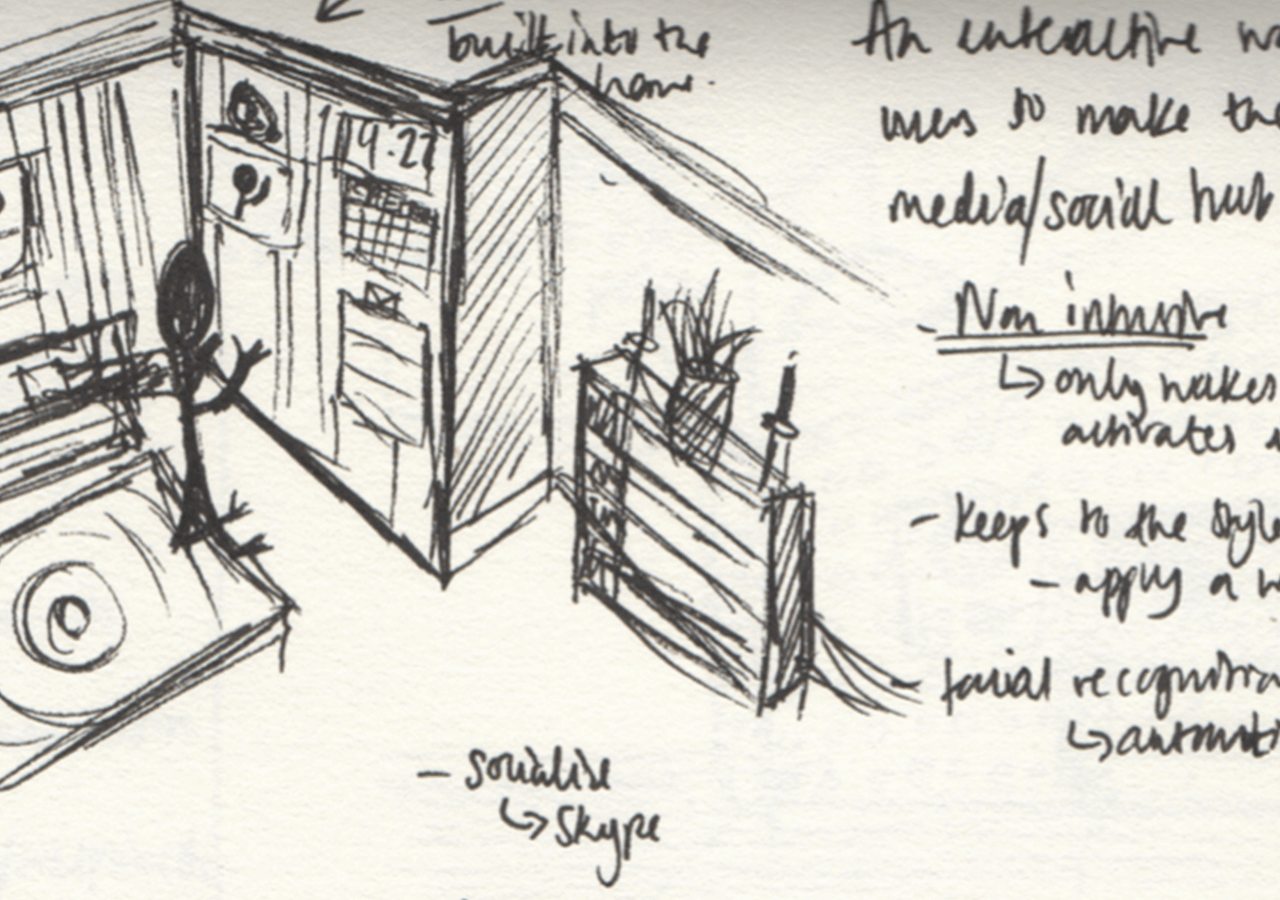 built into the
home.
An interactive
users to make the
media/social hub
- Non intrusive
↳ only wakes
activates
9:27
- keeps to the style
- apply a
- facial recognition
↳ automati
- socialise
↳ Skype